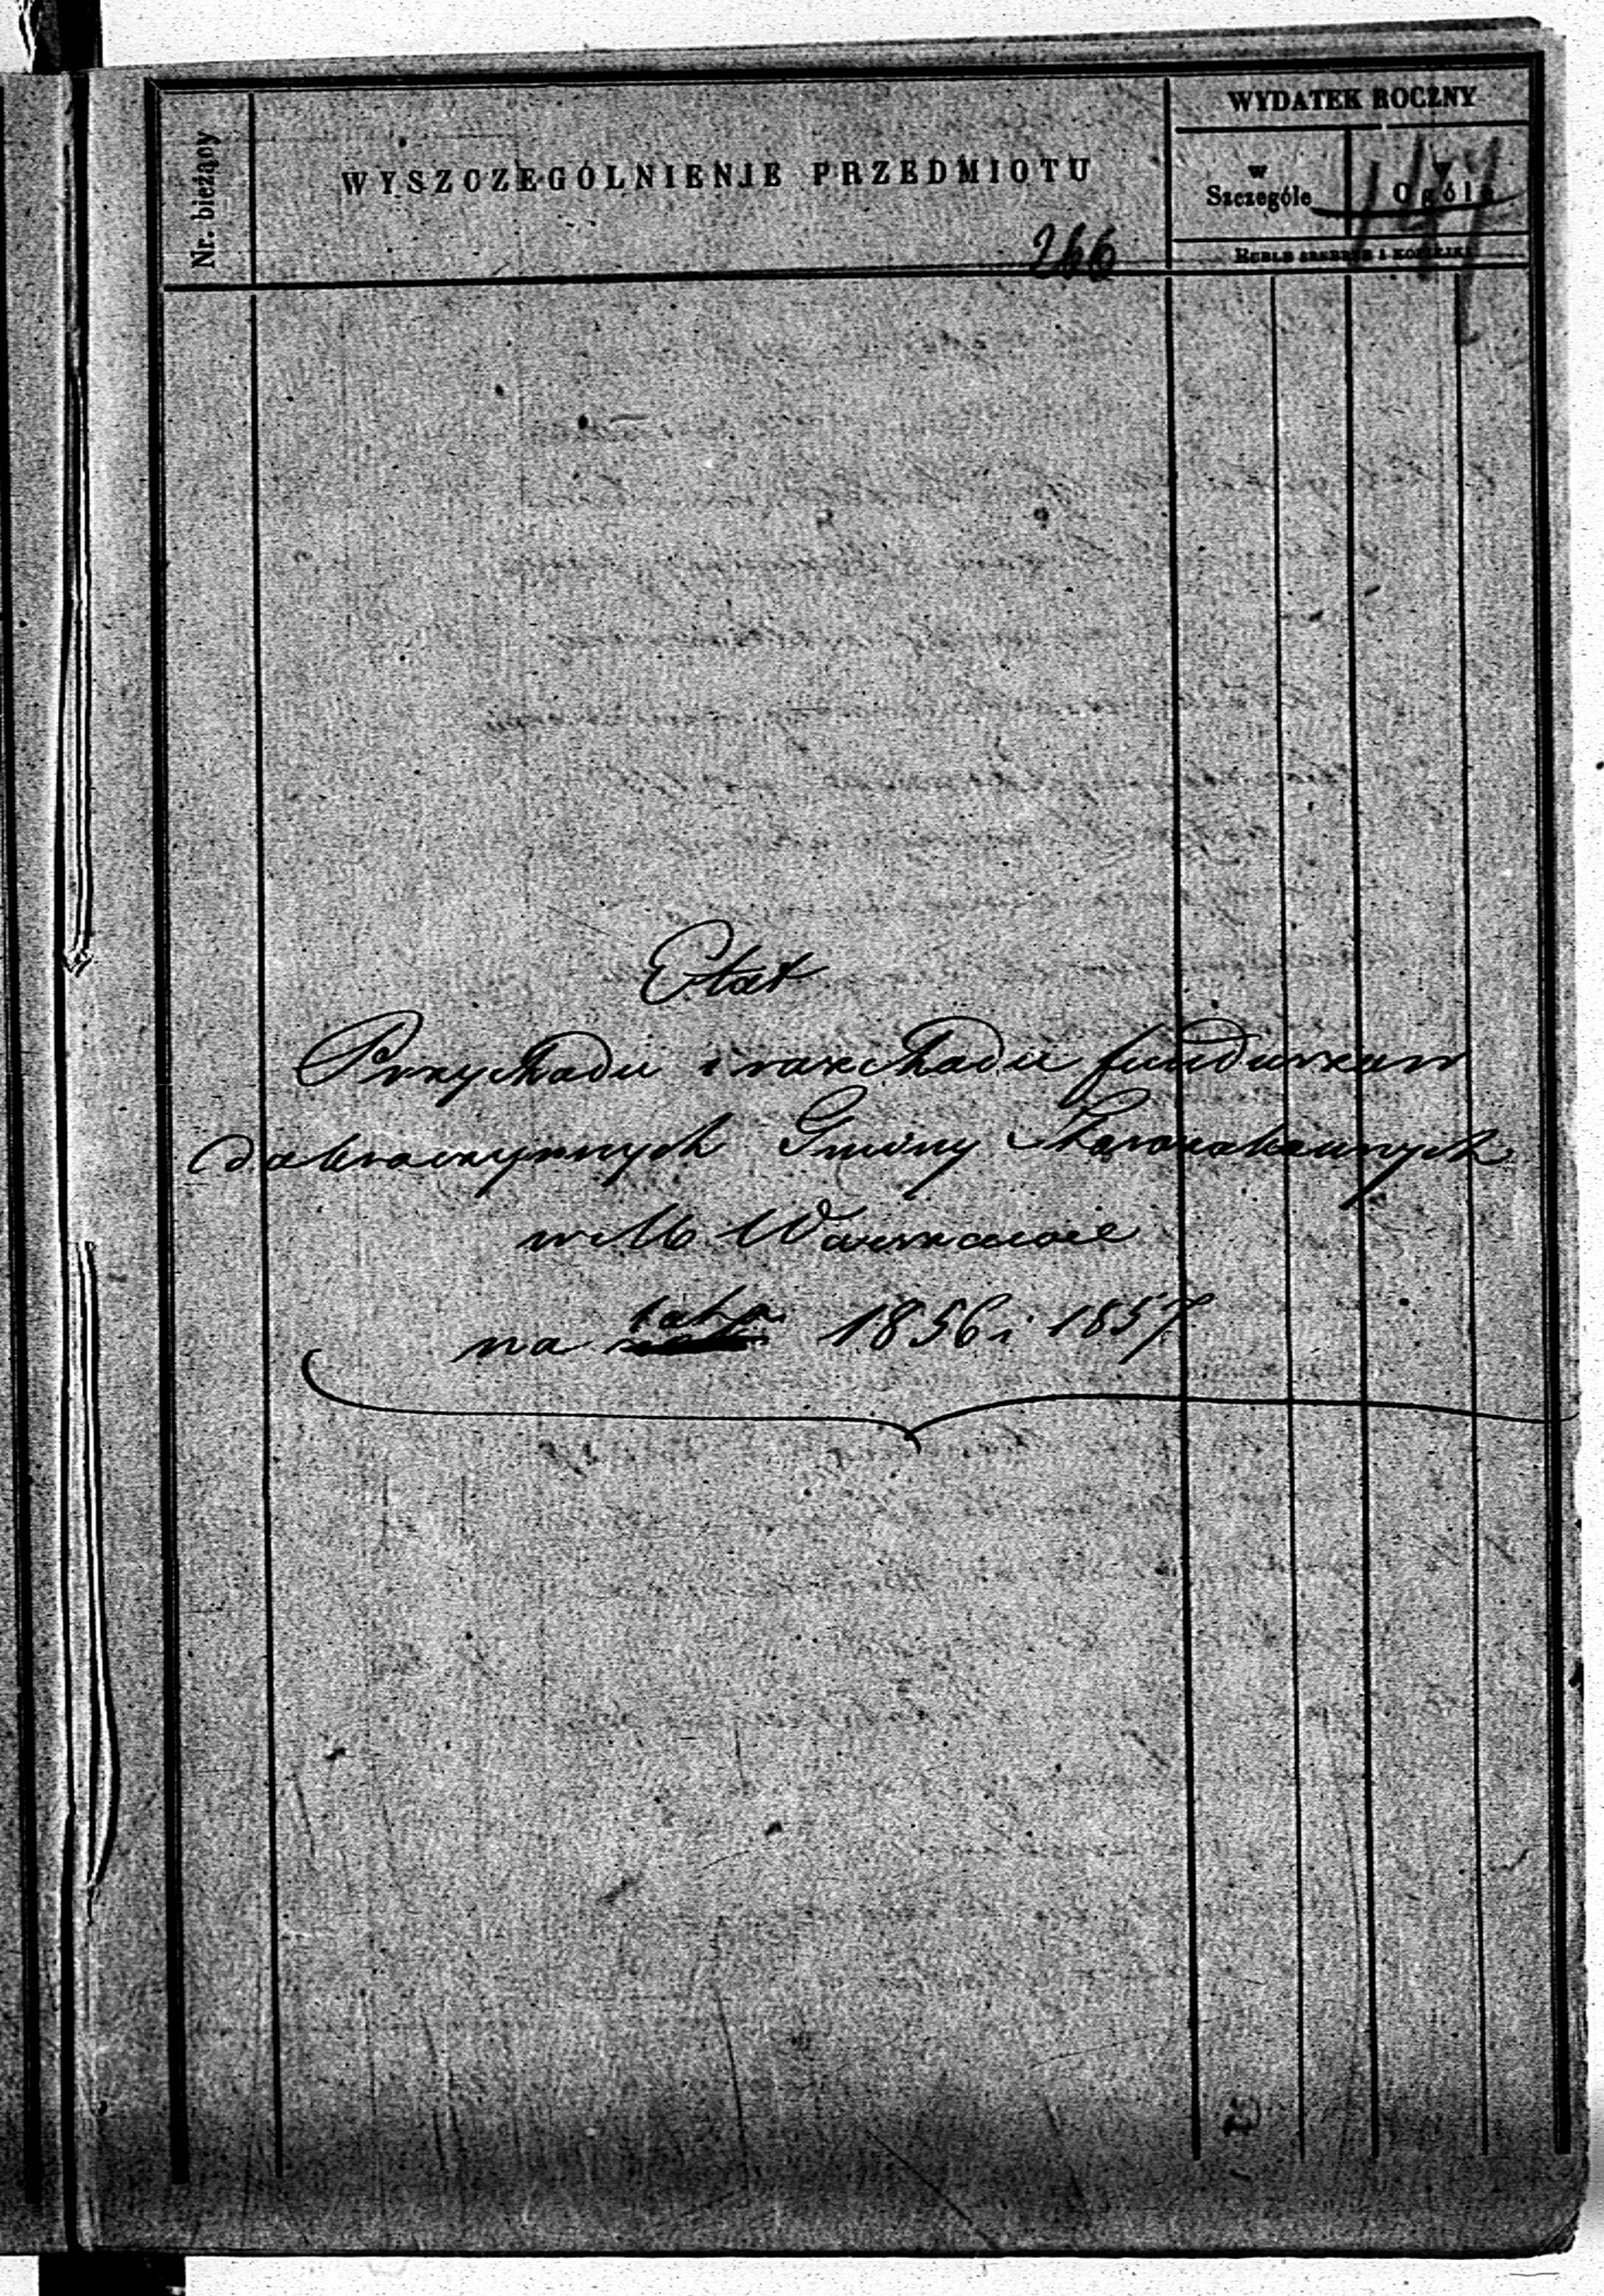 Nr. bieżący
WYSZCZEGÓLNIENIE PRZEDMIOTU
WYDATEK ROCZNY
w Szczególe
w Ogóle
RUBLE SREBRNE I KOPIEJKI
266
Etat
Przychodu i rozchodu funduszów
dobroczynnych Gminy Starozakonnych
w M. Warszawie
na lata 1856 i 1857